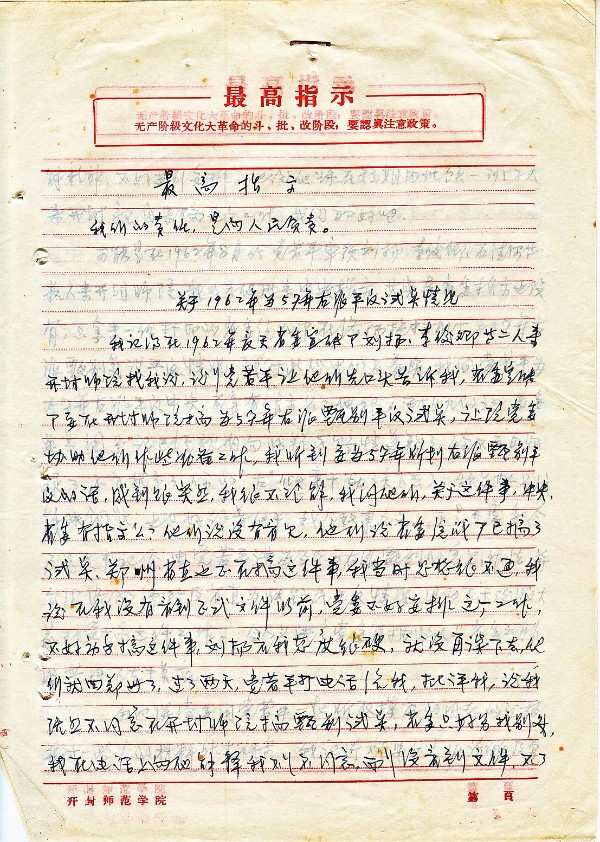 最高指示
无产阶级文化大革命的斗、批、改阶段，要認真注意政策。
最高指示
我们的责任，是向人民负责。
关于1962年为57年右派平反试点情况
我记得在1962年夏天省委宣传部刘扬、李俊卿等二人来
开封师院找我谈，说是若平让他们先口头告诉我，省委宣传
部在开封师院搞为57年右派甄别平反试点，让院党委
协助他们作些准备工作，我听到要为57年所划右派甄别平
反的话，感到很突然，我很不理解，我问他们，关于这件事，中央
省委有指示么？他们说没有意见，他们说省委统战部已搞了
试点，郑州有些也正在搞这件事，我当时思想很不通，我
说在我没有看到正式文件以前，党委不好安排这个工作，
不好动手搞这件事，刘扬看我态度很硬，就没再谈下去，他
们就回郑州了，过了两天，若平打电话给我，批评我，说我
院也不同意在开封师院搞甄别试点，省委只好另找别处，
我在电话上向他解释我不是不同意，而是没看到文件，不了
开封师范学院
第 頁